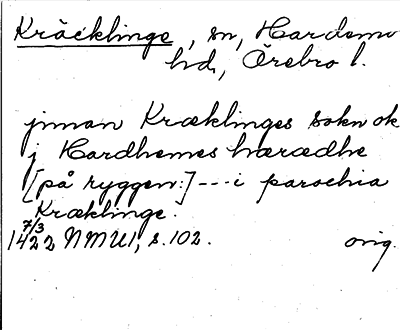 Kräcklinge, sn, Hardemo
hd, Örebro l.
jnnan Kræklinges sokn ok
j Hardhemes hæradhe
[på ryggen:] --- i parochia
Kræklinge.
7/3
1422 NMU1, s. 102. orig.